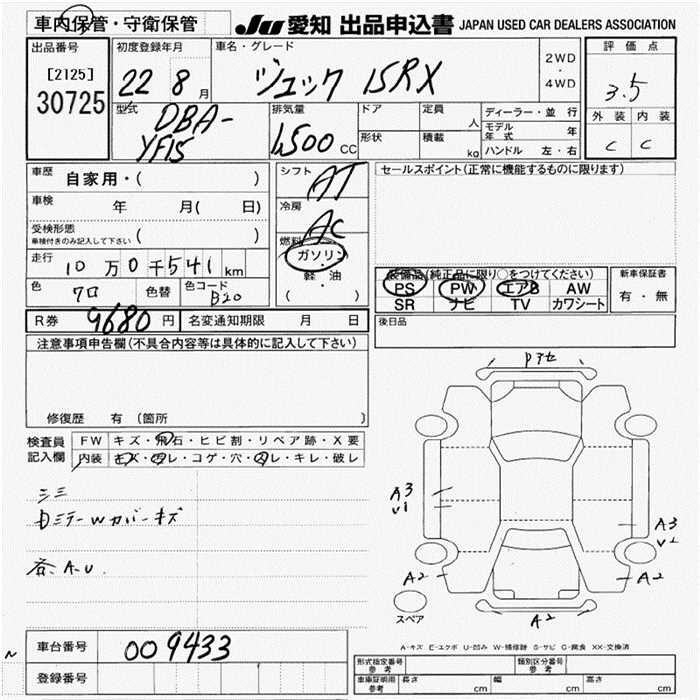 車内保管・守衛保管
JU 愛知 出品申込書 JAPAN USED CAR DEALERS ASSOCIATION
出品番号
[2125]
30725
初度登録年月
22 8 月
車名・グレード
ジューク 15RX
2WD
・
4WD
評価点
3.5
外装 内装
C C
型式
DBA-
YF15
排気量
1,500 CC
ドア
形状
定員
人
積載
kg
ディーラー・並 行
モデル年式 年
ハンドル 左・右
車歴 自家用・( )
車検 年 月( 日)
受検形態
車検付きのみ記入して下さい ( )
走行 10 万 0 千 541 km
色 クロ 色替 色コード B20
R券 9680 円 名変通知期限 月 日
シフト
AT
冷房
AC
燃料
ガソリン
軽・油
( )
セールスポイント(正常に機能するものに限ります)
装備品(純正品に限り○をつけてください)
PS PW エアB AW
SR ナビ TV カワシート
新車保証書
有・無
後日品
注意事項申告欄(不具合内容等は具体的に記入して下さい)
修復歴 有 〔箇所 〕
検査員
記入欄
FW キズ・飛石・ヒビ割・リペア跡・X要
内装 キズ・凹レ・コゲ・穴・スレ・キレ・破レ
三三
Dミラーwカバーキズ
各.A.U.
Pアセ
A3
v1
A3
v2
A2
A2
A2
スペア
A-キズ E-エクボ U-凹み W-補修跡 S-サビ C-腐食 XX-交換済
車台番号 009433
登録番号
型式指定番号
参考
類別区分番号
参考
車庫証明用
参考
長さ cm 幅 cm 高さ cm